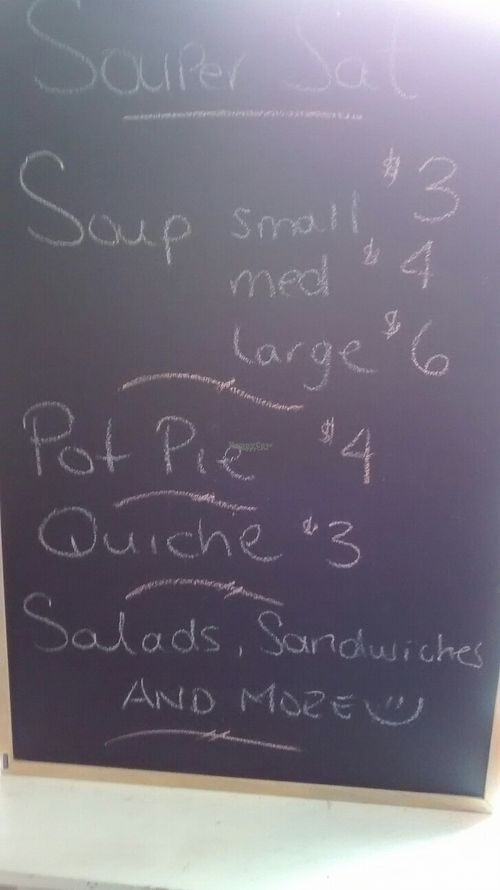 Souper Sat
Soup small $3
med $4
large $6
Pot Pie $4
HappyCow
Quiche $3
Salads, Sandwiches
AND MORE